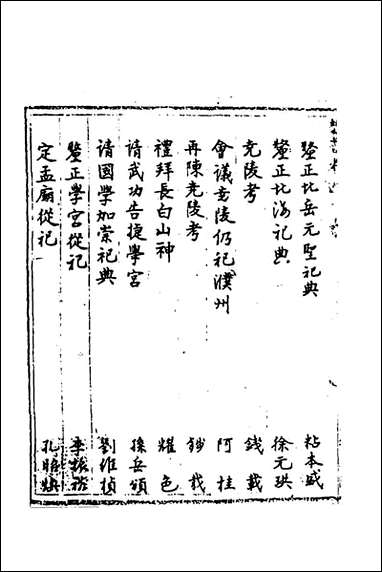 釐正北岳元聖祀典 粘本盛
釐正北海祀典 徐元珙
尭陵考 錢載
會議尭陵仍祀濮州 阿桂
再陳尭陵考 錢載
禮拜長白山神 耀色
請武功告捷學宮 孫岳頒
請國學加崇祀典 劉維楨
釐正學宮從祀 李振裕
定孟廟從祀 孔昭煥